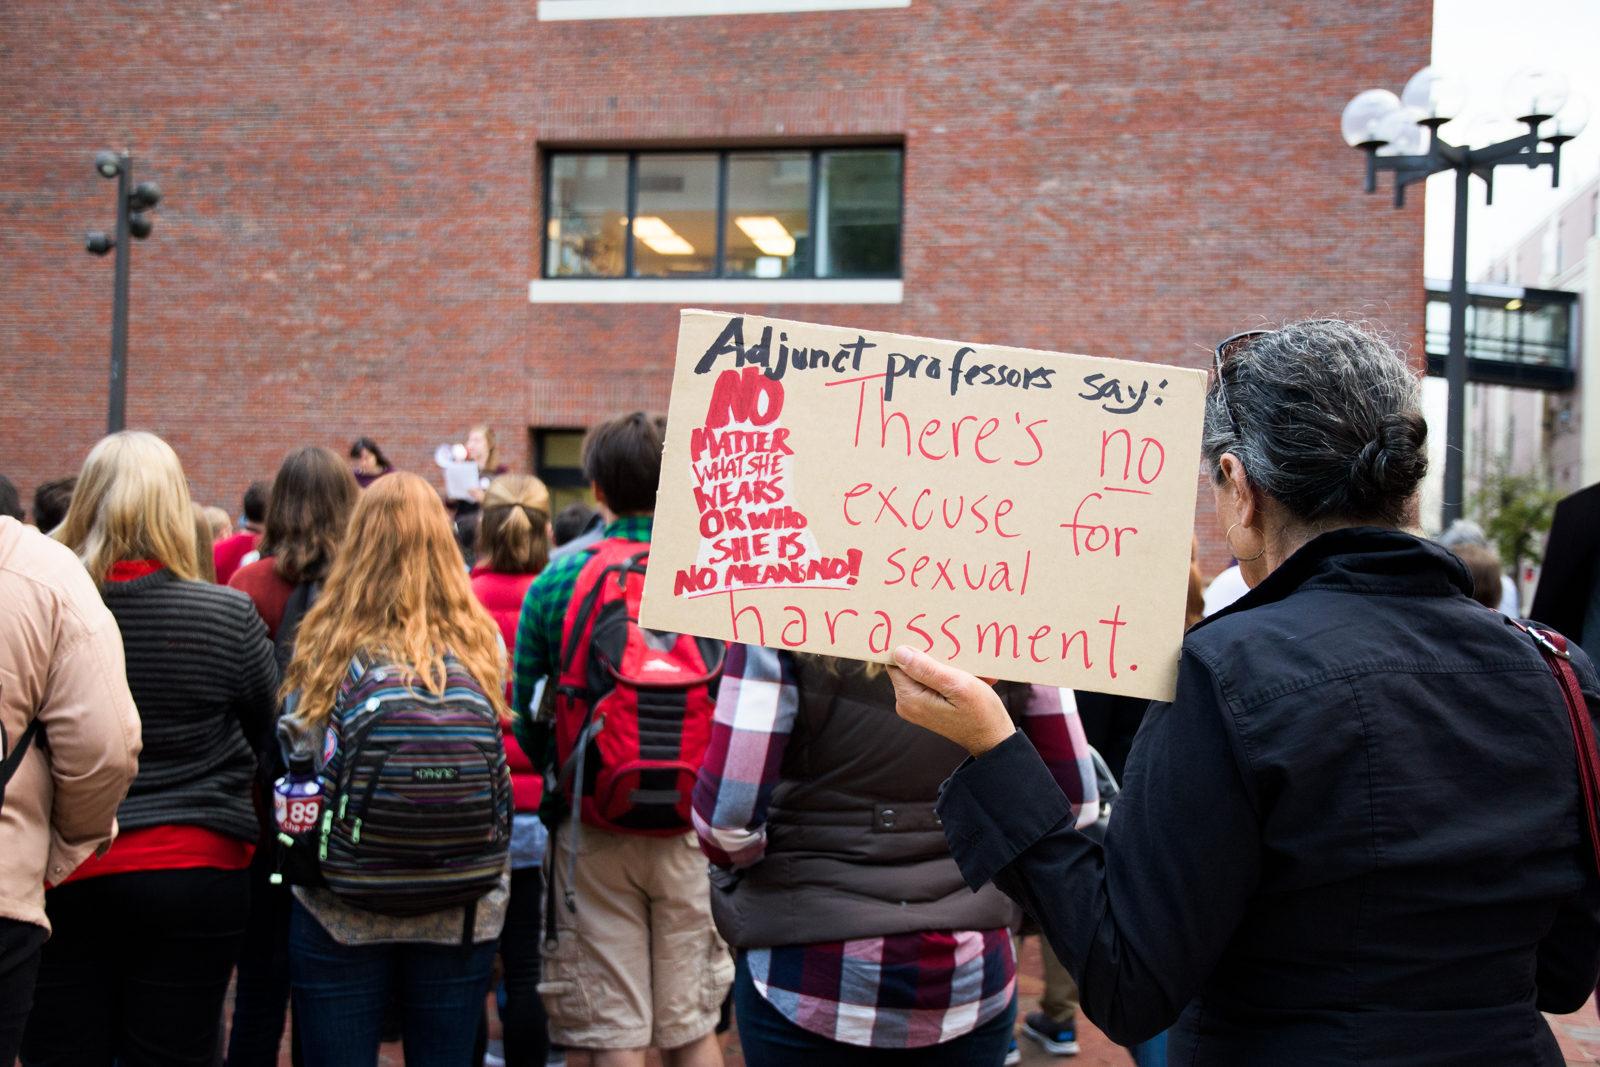 Adjunct professors say:
NO
MATTER
WHAT SHE
WEARS
OR WHO
SHE IS
NO MEANS NO!
There's no
excuse for
sexual
harassment.
DAKINE
89